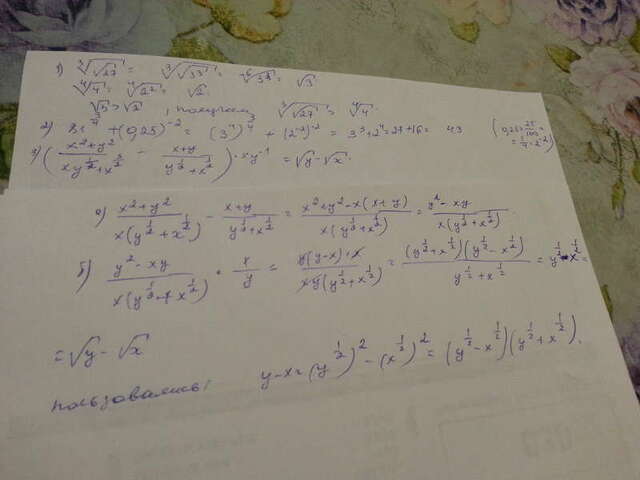 1) ∛(√27) = ∛(√(3³)) = ⁶√(3³) = √3
⁴√4 = ⁴√(2²) = √2
√3 > √2, получаем ∛(√27) > ⁴√4.
2) 81^(3/4) + (0,25)^(-2) = (3⁴)^(3/4) + (2^(-2))^(-2) = 3³ + 2⁴ = 27 + 16 = 43 (0,25 = 25/100 = = 1/4 = 2^(-2))
3) ((x² + y²)/(xy^(1/2) + x^(3/2)) - (x + y)/(y^(1/2) + x^(1/2))) · xy^(-1) = √y - √x.
а) (x² + y²)/(x(y^(1/2) + x^(1/2))) - (x + y)/(y^(1/2) + x^(1/2)) = (x² + y² - x(x + y))/(x(y^(1/2) + x^(1/2))) = (y² - xy)/(x(y^(1/2) + x^(1/2)))
б) (y² - xy)/(x(y^(1/2) + x^(1/2))) · x/y = (y(y - x) · x)/(xy(y^(1/2) + x^(1/2))) = ((y^(1/2) + x^(1/2))(y^(1/2) - x^(1/2)))/(y^(1/2) + x^(1/2)) = y^(1/2) - x^(1/2) =
= √y - √x
пользовались: y - x = (y^(1/2))² - (x^(1/2))² = (y^(1/2) - x^(1/2))(y^(1/2) + x^(1/2)).